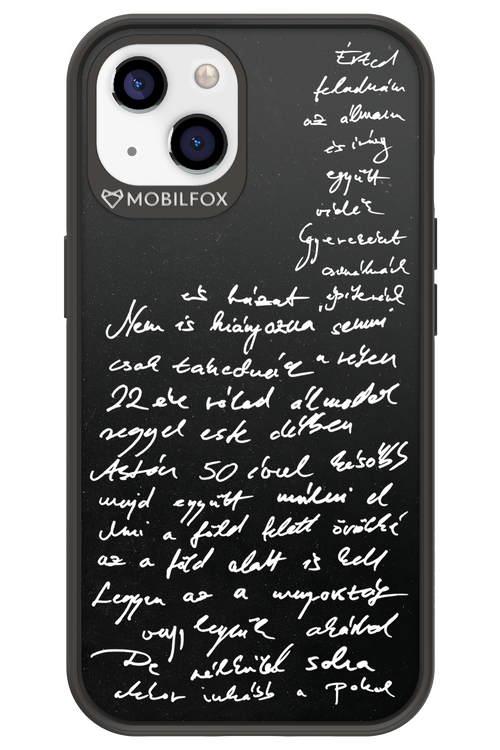 MOBILFOX
Érted
feladnám
az álmaim
és így
együtt
veled
Gyerekeink
csinálnánk
és házat építenénk
Nem is hiányozna semmi
csak takednéz a részem
22 éve rólad álmodok
reggel este délben
Aztán 50 évvel később
majd együtt múlni el
Ami a föld felett örökké
az a föld alatt is kell
Legyen az a mennyország
vagy legyünk akárhol
De nélküled soha
akkor inkább a Pokol